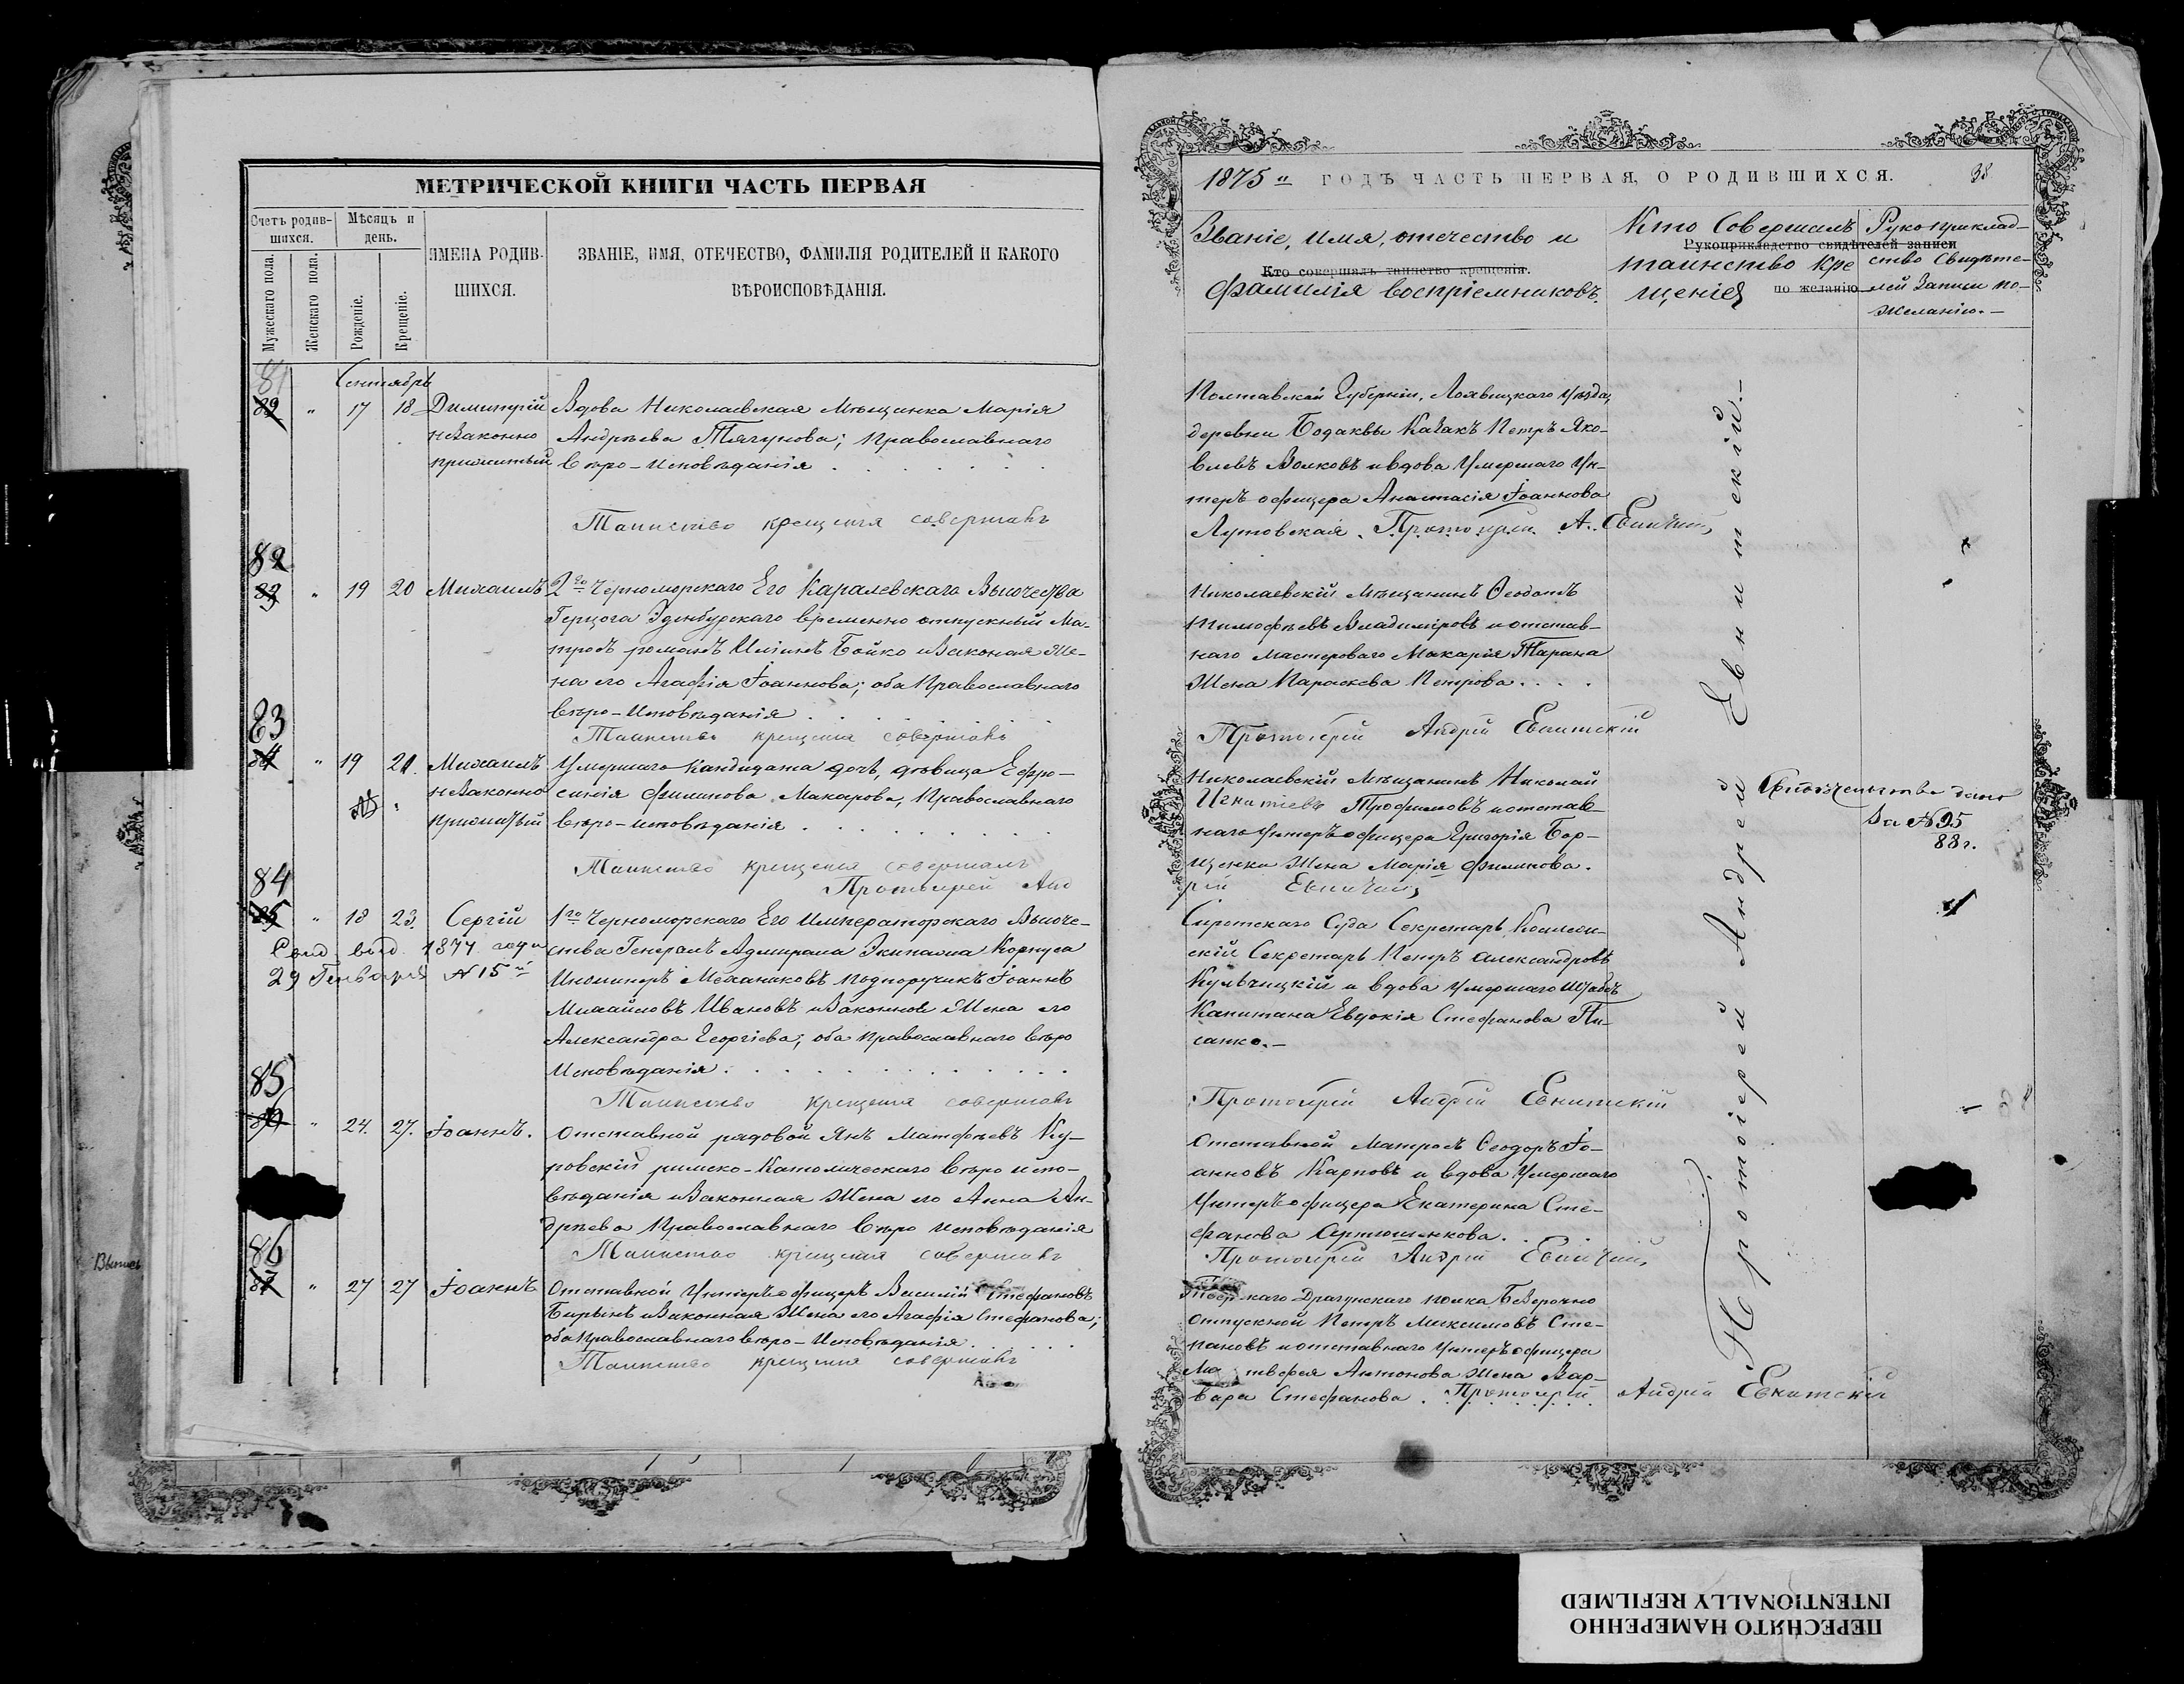 МЕТРИЧЕСКОЙ КНИГИ ЧАСТЬ ПЕРВАЯ
Счетъ родив-
шихся.
Мѣсяцъ и
день.
Мужескаго пола.
Женскаго пола.
Рожденіе.
Крещеніе.
ИМЕНА РОДИВ-
ШИХСЯ.
ЗВАНІЕ, ИМЯ, ОТЕЧЕСТВО, ФАМИЛІЯ РОДИТЕЛЕЙ И КАКОГО
ВѢРОИСПОВѢДАНІЯ.
Сентябрь
81
17 18 Димитрій Вдова Николаевская Мѣщанка Марія
незаконно Андрѣева Тягунова; Православнаго
прижитый вѣро-исповѣданія
Таинство крещенія совершалъ
82
19 20 Михаилъ 2го Черноморскаго Его Каралевскаго Высочества
Герцога Эдинбурскаго временно отпускный Ма-
тросъ романъ Илiинъ Бойко и законая Же-
на его Агафія Іоаннова; оба Православнаго
вѣро-исповѣданія
Таинство крещенія совершалъ
83
19 21. Михаилъ Умершаго Кандидата дочь, дѣвица Ефро-
незаконно синія Филипова Макарова, Православнаго
прижитый вѣро-исповѣданія
Таинство крещенія совершалъ
Протоіерей Анд
84
18 23. Сергій 1го Черноморскаго Его Императорскаго Высоче-
Свид. выд. 1877 года ства Генералъ Адмирала Экипажа Корпуса
29 Генваря №15й Инжинеръ Механиковъ подпоручикъ Іоаннъ
Михайловъ Ивановъ и Законная Жена его
Александра Георгіева; оба православнаго вѣро
Исповѣданія
Таинство крещенія совершалъ
85
24. 27. Іоаннъ. Отставной рядовой Янъ Матфѣевъ Ку-
ровскій римско-Католическаго вѣро испо-
вѣданія и Законная Жена его Анна Ан-
дрѣева Православнаго вѣро исповѣданія
Таинство крещенія совершалъ
86
27 27 Іоаннъ Отставной Унтеръ офицеръ Василій Стефановъ
и Законная Жена его Агафія Стефанова;
оба православнаго вѣро-Исповѣданія
Таинство крещенія совершалъ
1875й ГОДЪ ЧАСТЬ ПЕРВАЯ, О РОДИВШИХСЯ. 38
Званіе, имя, отечество и
Кто совершалъ таинство крещенія.
фамилія воспріемниковъ.
Кто Совершалъ
Рукоприкладство свидѣтелей записи
таинство кре
щенія
по желанію
Рукоприклад-
ство Свидѣте-
лей записи по-
желанію.-
Полтавской Губерніи, Лохвицкаго уѣзда,
деревни Бодаквы Казакъ Петръ Яко-
влевъ Волковъ и вдова Умершаго Ун-
теръ офицера Анастасія Іоаннова
Лутовская. Протоіерей А. Евнитскій
Николаевскій Мѣщанинъ Ѳеодотъ
Тимофѣевъ Владиміровъ и отстав-
наго мастероваго Макарія Тарана
Жена Параскева Петрова
Протоіерей Андрей Евнитскій
Николаевскій Мѣщанинъ Николай
Игнатіевъ Трофимовъ и отстав-
наго Унтеръ офицера Григорія Бор-
щенка Жена Марія Филипова.
рей Евнитскій
Свидѣтельство дано
за №95
88г.
Сиротскаго Суда Секретарь, Коллеж-
скій Секретарь Петръ Александровъ
Кульчицкій и вдова Умершаго Штабсъ
Капитана Евдокія Стефанова Пи-
санко.-
Протоіерей Андрей Евнитскій
Отставной Матросъ Ѳеодоръ Іо-
анновъ Карповъ и вдова Умершаго
Унтеръ офицера Екатерина Сте-
фанова Артюшенкова.
Протоіерей Андрей Евнитскій
Тверскаго Драгунскаго полка Безсрочно
отпускной Петръ Максимовъ Сте-
пановъ и отставнаго Унтеръ офицера
Матвѣя Антонова Жена Вар-
вара Стефанова. Протоіерей Андрей Евнитскій
Протоіерей Андрей Евнитскій.-
ПЕРЕСНЯТО НАМЕРЕННО
INTENTIONALLY REFILMED